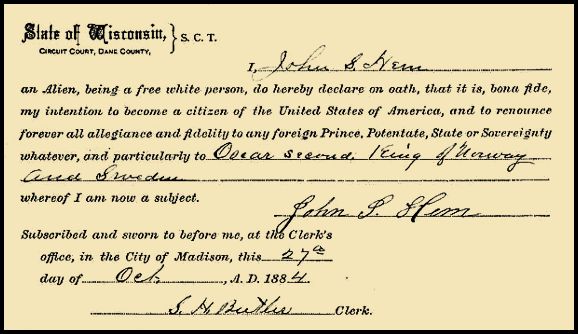 State of Wisconsin, } S. C. T.
CIRCUIT COURT, DANE COUNTY,
I, John S. Hem
an Alien, being a free white person, do hereby declare on oath, that it is, bona fide,
my intention to become a citizen of the United States of America, and to renounce
forever all allegiance and fidelity to any foreign Prince, Potentate, State or Sovereignty
whatever, and particularly to Oscar second, King of Norway
and Sweden
whereof I am now a subject.
John S. Hem
Subscribed and sworn to before me, at the Clerk's
office, in the City of Madison, this 27th
day of Oct. , A. D. 1884.
S. H. Butler Clerk.